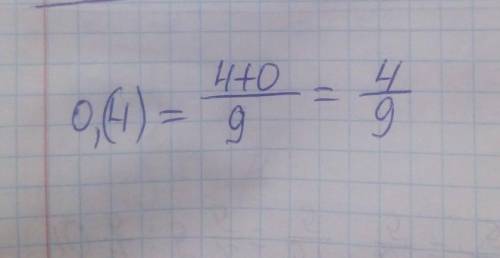 0,(4) = 4+0/9 = 4/9